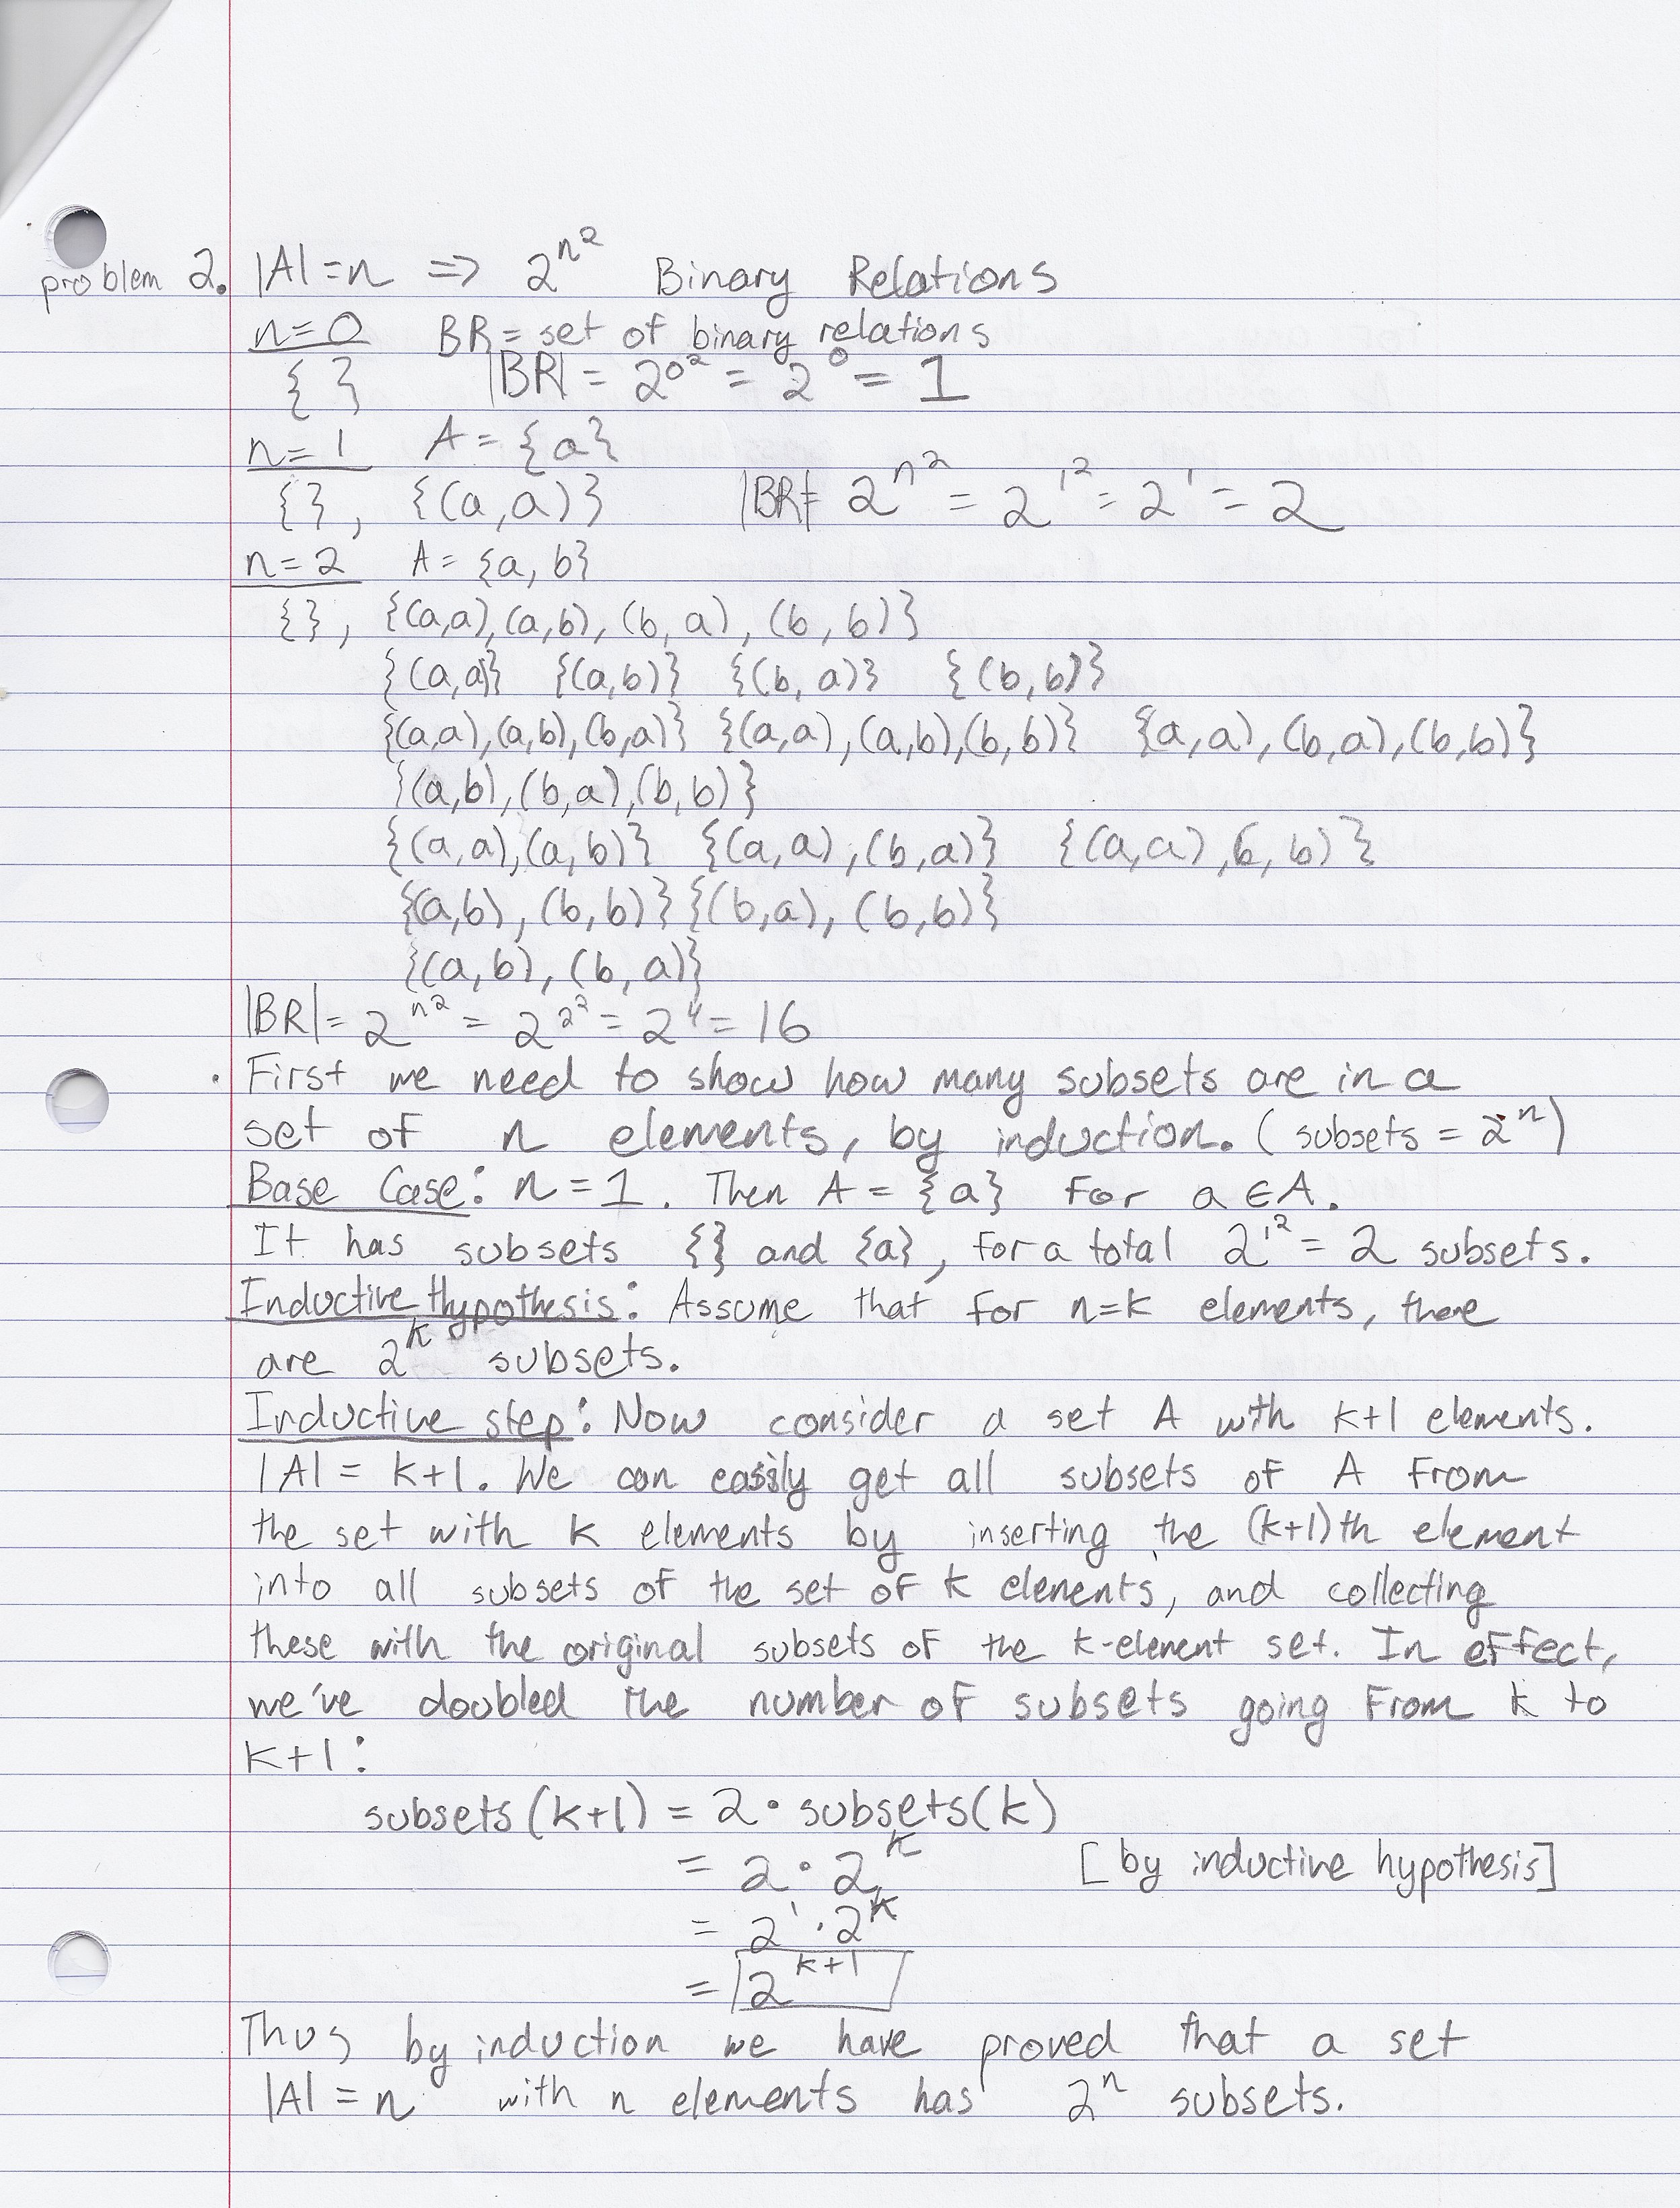 problem 2. |A| = n => 2^n^2 Binary Relations
n=0 BR = set of binary relations
{ } |BR| = 2^0^2 = 2^0 = 1
n=1 A = {a}
{}, {(a,a)} |BR|= 2^n^2 = 2^1^2 = 2^1 = 2
n=2 A = {a, b}
{}, {(a,a),(a,b),(b,a),(b,b)}
{(a,a)} {(a,b)} {(b,a)} {(b,b)}
{(a,a),(a,b),(b,a)} {(a,a),(a,b),(b,b)} {a,a),(b,a),(b,b)}
{(a,b),(b,a),(b,b)}
{(a,a),(a,b)} {(a,a),(b,a)} {(a,a),(b,b)}
{(a,b),(b,b)} {(b,a),(b,b)}
{(a,b),(b,a)}
|BR| = 2^n^2 = 2^2^2 = 2^4 = 16
· First we need to show how many subsets are in a
set of n elements, by induction. (subsets = 2^n)
Base Case: n=1. Then A = {a} for a ∈ A.
It has subsets {} and {a}, for a total 2^1^2 = 2 subsets.
Inductive Hypothesis: Assume that for n=k elements, there
are 2^k subsets.
Inductive step: Now consider a set A with k+1 elements.
|A| = k+1. We can easily get all subsets of A from
the set with k elements by inserting the (k+1)th element
into all subsets of the set of k elements, and collecting
these with the original subsets of the k-element set. In effect,
we've doubled the number of subsets going from k to
k+1:
subsets(k+1) = 2 · subsets(k)
= 2 · 2^k [by inductive hypothesis]
= 2^1 · 2^k
= 2^k+1
Thus by induction we have proved that a set
|A| = n with n elements has 2^n subsets.